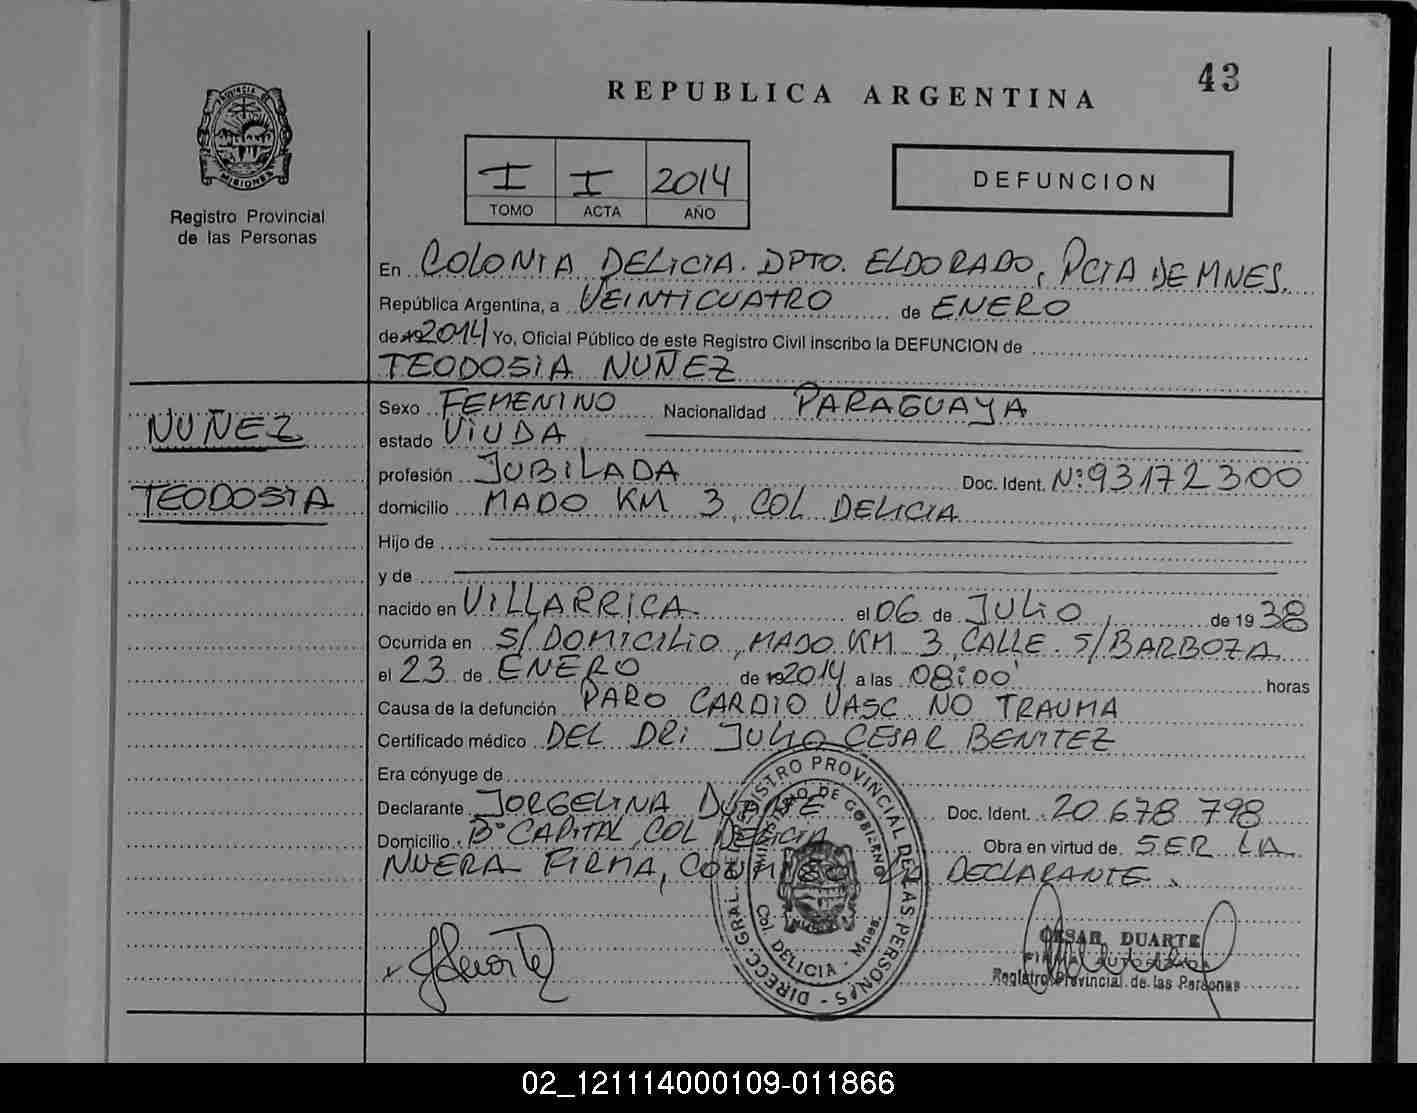 43
REPUBLICA ARGENTINA
PROVINCIA DE
MISIONES
Registro Provincial
de las Personas
I I 2014
TOMO ACTA AÑO
DEFUNCION
En COLONIA DELICIA. DPTO. ELDORADO, PCIA DE MNES.
República Argentina, a VEINTICUATRO de ENERO
de 19 2014 Yo, Oficial Público de este Registro Civil inscribo la DEFUNCION de
TEODOSIA NUÑEZ
NUÑEZ
TEODOSIA
Sexo FEMENINO Nacionalidad PARAGUAYA
estado VIUDA
profesión JUBILADA Doc. Ident. Nº: 93172300
domicilio MADO KM 3, COL DELICIA
Hijo de
y de
nacido en VILLARRICA el 06 de JULIO de 1938
Ocurrida en S/ DOMICILIO, MADO KM 3, CALLE S/ BARBOZA
el 23 de ENERO de 19 2014 a las 08:00' horas
Causa de la defunción PARO CARDIO VASC NO TRAUMA
Certificado médico DEL DR: JULIO CESAR BENITEZ
Era cónyuge de
Declarante JORGELINA DUARTE Doc. Ident. 20.678.798
Domicilio Bº CAPITAL, COL DELICIA Obra en virtud de SER LA
NUERA FIRMA, DECLARANTE.
DIRECC. GRAL. DE REGISTRO PROVINCIAL DE LAS PERSONAS
MINISTERIO DE GOBIERNO
Col. DELICIA - Mnes.
CESAR DUARTE
FIRMA AUTORIZADA
Registro Provincial de las Personas
02_121114000109-011866